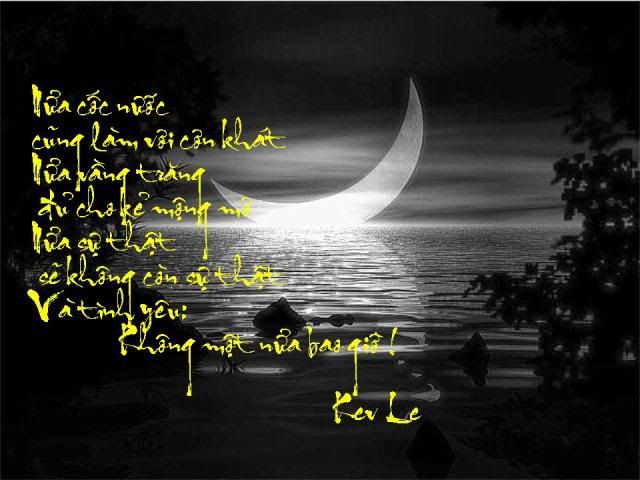 Nửa cốc nước
cũng làm vơi cơn khát
Nửa vầng trăng
đủ cho kẻ mộng mơ
Nửa sự thật
sẽ không còn sự thật
Và tình yêu:
Không một nửa bao giờ !
Kev Le